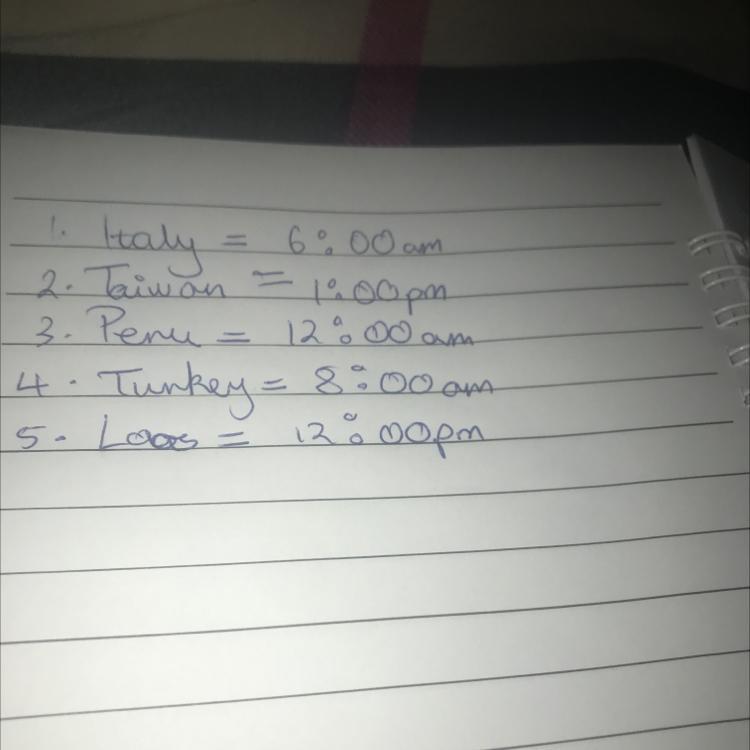 1. Italy = 6:00am
2. Taiwan = 1:00pm
3. Peru = 12:00am
4. Turkey = 8:00am
5. Laos = 12:00pm